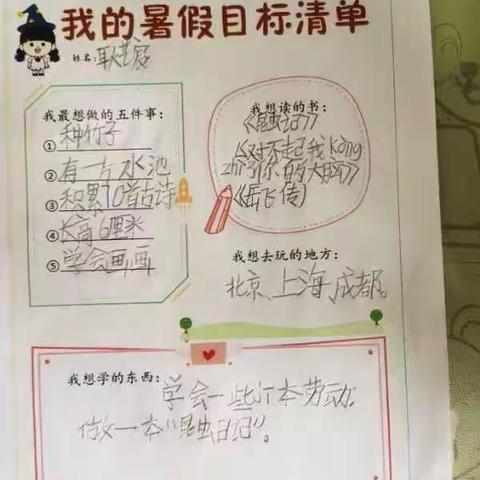 我的暑假目标清单
姓名:耿艺宸
我最想做的五件事:
①种竹子
②有一方水池
③积累70首古诗
④长高6厘米
⑤学会画画
我想读的书:
《昆虫记》
《对不起我kòng
zhì了你的大脑》
《岳飞传》
我想去玩的地方:
北京、上海、成都。
我想学的东西:学会一些基本劳动
做一本"昆虫日记"。